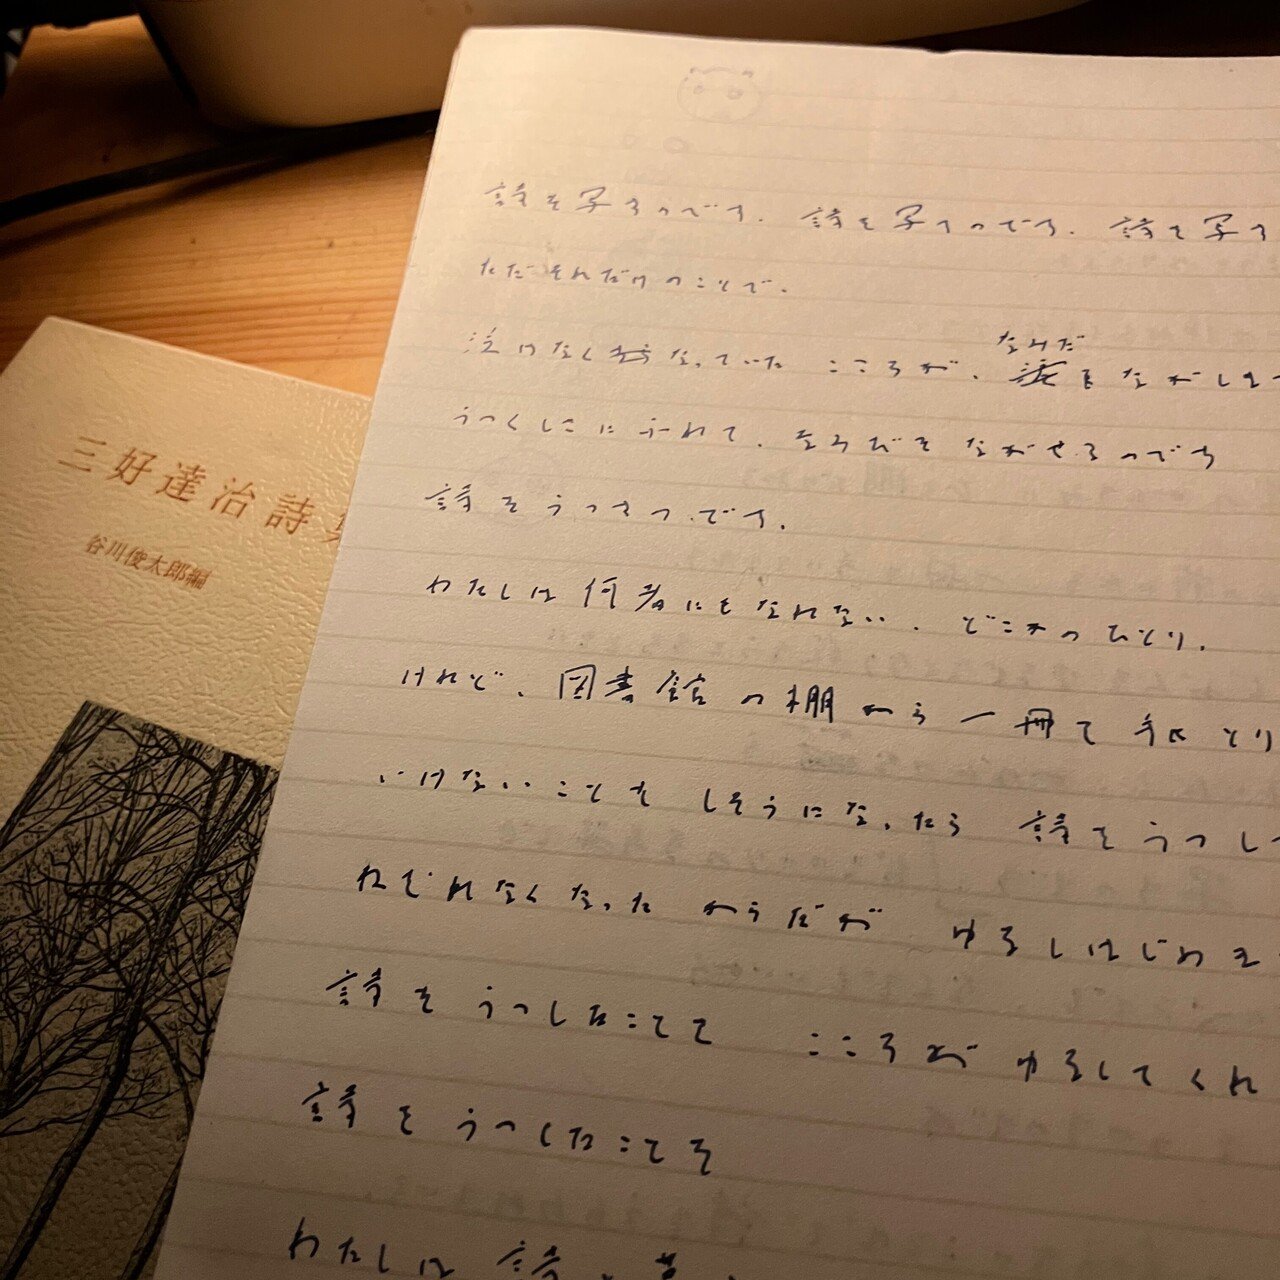 三好達治詩
谷川俊太郎編
詩を写すのです. 詩を写すのです. 詩を写す
ただそれだけのことで.
泣けなくなっていた こころが、なみだをながしま
うつくしさにふれて、なみだをながせるのです
詩をうつすのです.
わたしは何者にもなれない、どこかのひとり.
けれど、図書館の棚から一冊て手にとり
いけないことをしそうになったら 詩をうつし
ねむれなくなった からだが ゆるしはじめま
詩をうつしたことて こころがゆるしてくれ
詩をうつしたことを
わたしは 詩